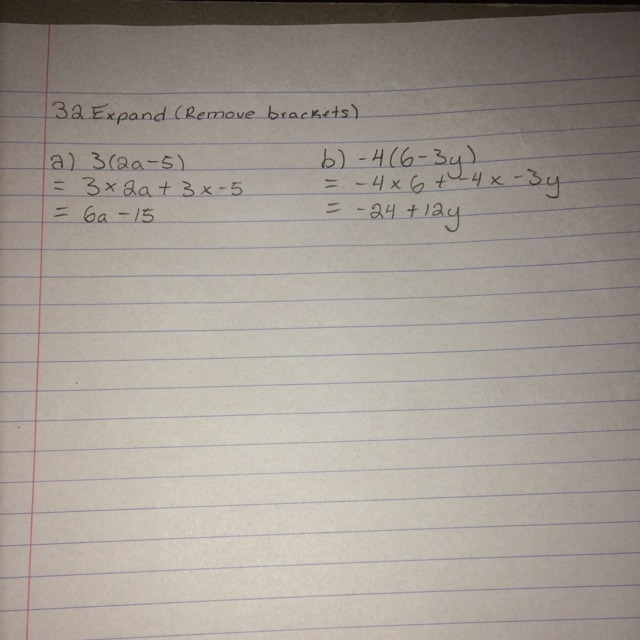 32 Expand (Remove brackets)
a) 3(2a-5)
= 3×2a + 3×-5
= 6a -15
b) -4(6-3y)
= -4×6 + -4× -3y
= -24 +12y